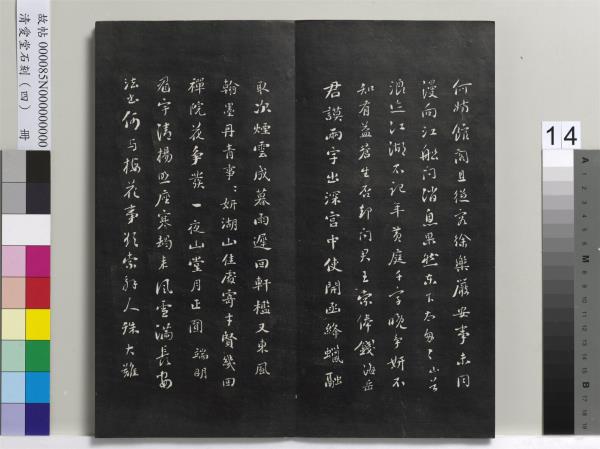 何妨館閣且從容徐樂嚴安事未同
漫向江船問消息果然東下太匆匆山谷
浪迹江湖不記年黃庭千字晚尤妍不
知有益蒼生否却問君王索俸錢海岳
君謨兩字出深宮中使開函絳蠟融
取次煙雲成暮雨遲回軒檻又東風
翰墨丹青事事妍湖山佳處寄才賢幾回
禪院花爭發一夜山堂月正圓端明
眉宇清揚照座寒朅來風雪滿長安
法書何与梅花事欲索解人殊大難
故帖 000085N000000000
清愛堂石刻(四) 冊
14